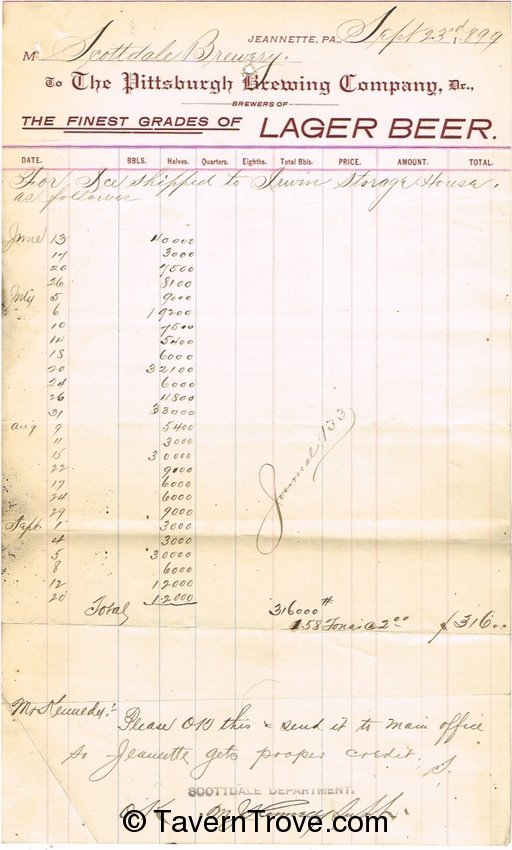 JEANNETTE, PA., Sept 23rd 1899
M Scottdale Brewery.
To The Pittsburgh Brewing Company, Dr.,
BREWERS OF
THE FINEST GRADES OF LAGER BEER.
DATE. BBLS. Halves. Quarters. Eighths. Total Bbls. PRICE. AMOUNT. TOTAL.
For Ice shipped to Irwin Storage House.
as follows
June 13 40000
17 3000
20 7500
26 8100
July 5 9000
6 19200
10 7500
14 5400
18 6000
20 32100
24 6000
26 4800
31 38000
aug 9 5400
11 3000
15 30000
22 9000
17 6000
24 6000
29 9000
Sept. 1 3000
4 3000
5 30000
8 6000
12 12000
20 12000
Journal 133
Total 316000 #
158 Tons @ 2 00 $ 316 00
Mr Kennedy:-
Please OK this & send it to main office
so Jeanette gets proper credit.
SCOTTDALE DEPARTMENT.
© TavernTrove.com